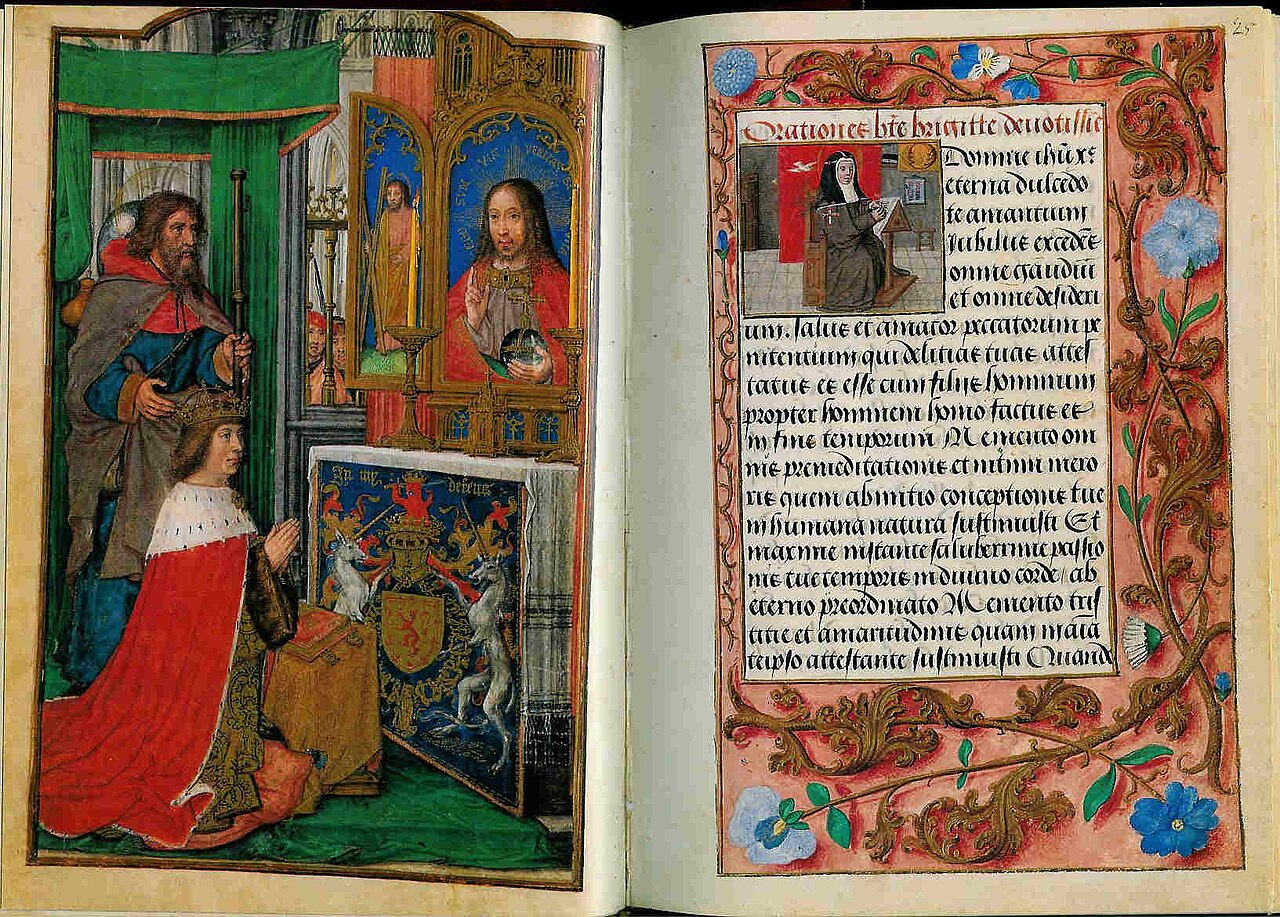 In my defens
SUM VIA VERITAS
25
Orationes bte brigitte deuotissie
Domine ihũ xp̃e
eterna dulcedo
te amantium
Iubilus excedẽs
omne gaudiũ
et omne desideri
um. salus et amator peccatorum pe
nitentium qui delitias tuas attes
tatus es esse cum filijs hominum
propter hominem homo factus es
in fine temporum Memento om
nis premeditationis et intimi mero
ris quem ab initio conceptionis tue
in humana natura sustinuisti Et
maxime instante saluberrime passio
nis tue temporis in diuino corde ab
eterno preordinato Memento tris
titie et amaritudinis quam in aĩa
teipso attestante sustinuisti Quando